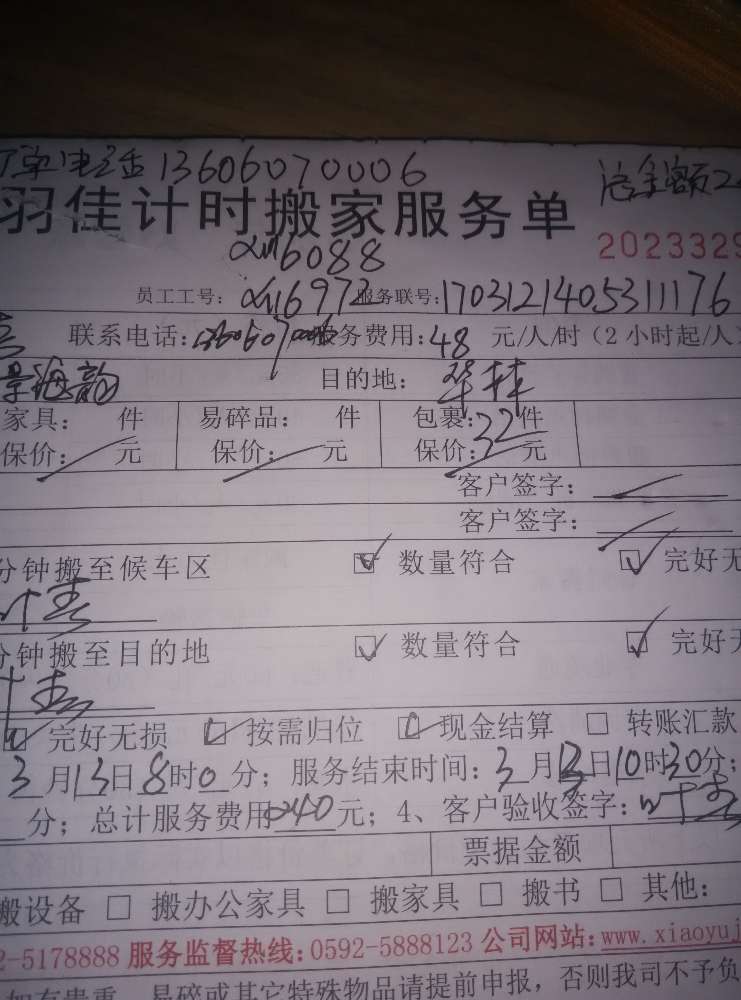 单电话13606070006
洽余额2
羽佳计时搬家服务单
2023329
xm6088
员工工号：xm6972 服务联号：1703121405311176
联系电话：13606070006 服务费用：48 元/人/时（2小时起/人）
景海韵 目的地：华林
家具： 件 易碎品： 件 包裹：32件
保价： 元 保价： 元 保价： 元
客户签字：
客户签字：
分钟搬至候车区 ☑ 数量符合 ☑ 完好无
叶青
分钟搬至目的地 ☑ 数量符合 ☑ 完好无
叶青
☑ 完好无损 ☑ 按需归位 ☑ 现金结算 □ 转账汇款
3月13日8时0分；服务结束时间：3月13日10时30分；
分；总计服务费用240元；4、客户验收签字：叶青
票据金额
搬设备 □ 搬办公家具 □ 搬家具 □ 搬书 □ 其他：
2-5178888 服务监督热线：0592-5888123 公司网站：www.xiaoyuj
如有贵重、易碎或其它特殊物品请提前申报，否则我司不予负